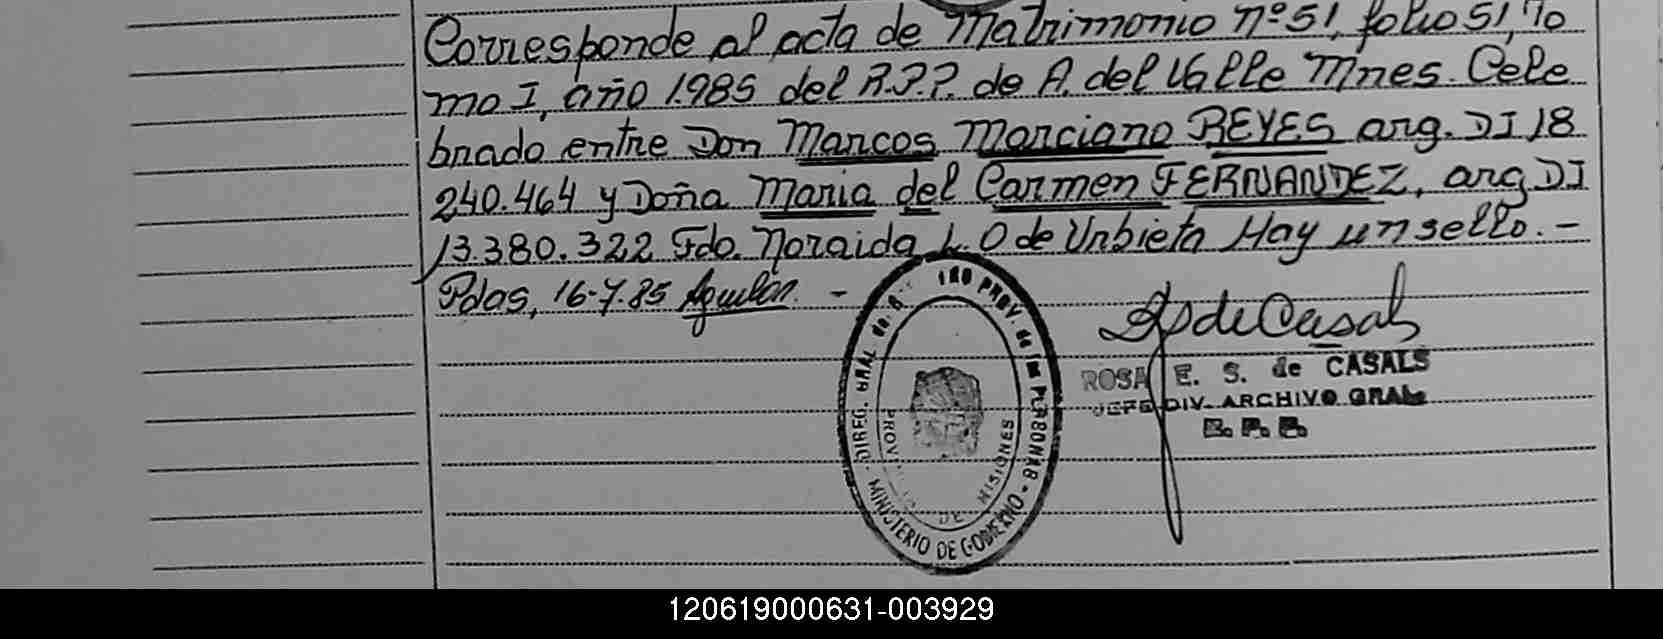 Corresponde al acta de Matrimonio nº 51, folio 51, To
mo I, año 1.985 del R.P.P. de A. del Valle Mnes. Cele
brado entre Don Marcos Marciano REYES arg. DI 18
240.464 y Doña Maria del Carmen FERNANDEZ, arg DI
13.380.322 Fdo. Noraida L. O de Urbieta Hay un sello. -
Pdas, 16-7-85 Aguilar. -
DIREC. GRAL de PROV. de las PERSONAS - MINISTERIO DE GOBIERNO
PROV DE MISIONES
ROSA E. S. de CASALS
JEFE DIV. ARCHIVO GRAL
R. P. P.
120619000631-003929